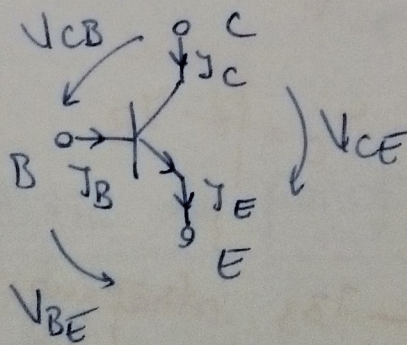 VCB
C
IC
VCE
B
IB
IE
E
VBE